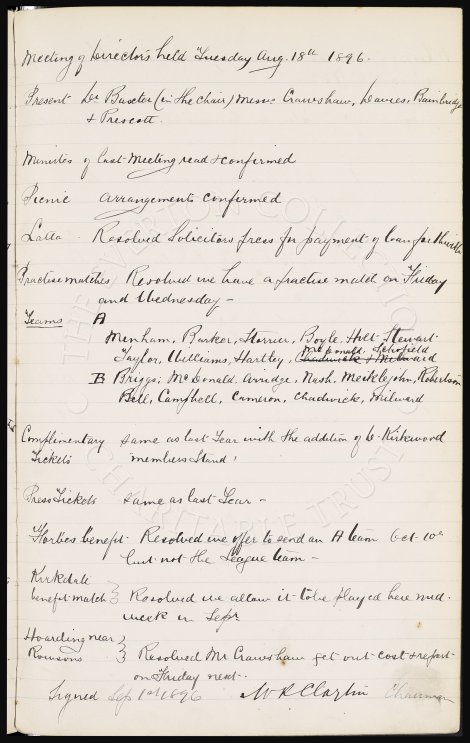 Meeting of Directors held Tuesday Aug. 18th 1896.
Present Dr Baxter (in the Chair) Messrs Crawshaw, Davies, Bainbridge
& Prescott.
Minutes of last Meeting read & confirmed
Picnic arrangements confirmed
Latta Resolved Solicitors press for payment of loan forthwith
Practise matches Resolved we have a practise match on Friday
and Wednesday –
Teams A
Menham, Barker, Storrier, Boyle, Holt Stewart
McDonald, Schofield
Taylor, Williams, Hartley, Chadwick & Milward
B Briggs, McDonald, Arridge, Nash, Meiklejohn, Robertson
Bell, Campbell, Cameron, Chadwick, Milward
Complimentary same as last Year with the addition of 6 Kirkwood
Tickets members Stand
Press Tickets same as last Year –
Forbes benefit Resolved we offer to send an A team Oct 10th
but not the League team –
Kirkdale
benefit match } Resolved we allow it to be played here mid
week in Sepr
Hoarding near
Rowsons } Resolved Mr Crawshaw get out cost & report
on Friday next.
Signed Sep 1st 1896 W R Clayton Chairman
THE EVERTON COLLECTION
CHARITABLE TRUST